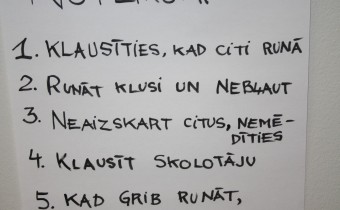 1. KLAUSĪTIES, KAD CITI RUNĀ
2. RUNĀT KLUSI UN NEBĻAUT
3. NEAIZSKART CITUS, NEMĒ-
DĪTIES
4. KLAUSĪT SKOLOTĀJU
5. KAD GRIB RUNĀT,